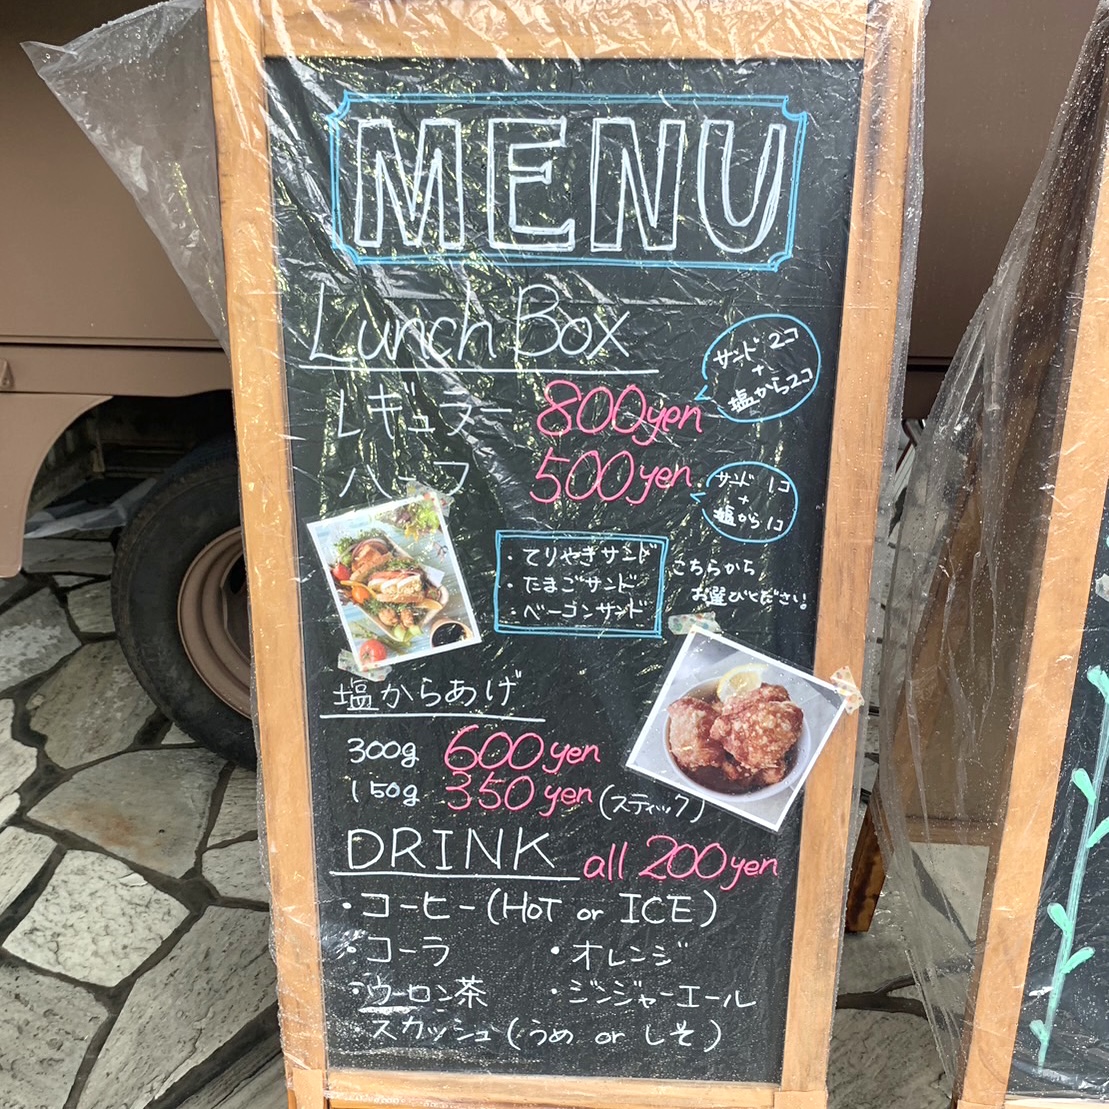 MENU
Lunch Box
レギュラー 800yen
サンド 2コ
+
塩から2コ
ハーフ 500yen
サンド 1コ
+
塩から1コ
・てりやきサンド
・たまごサンド
・ベーコンサンド
こちらから
お選びください!
塩からあげ
300g 600yen
150g 350yen (スティック)
DRINK all 200yen
・コーヒー(HoT or ICE)
・コーラ ・オレンジ
・ウーロン茶 ・ジンジャーエール
スカッシュ(うめ or しそ)